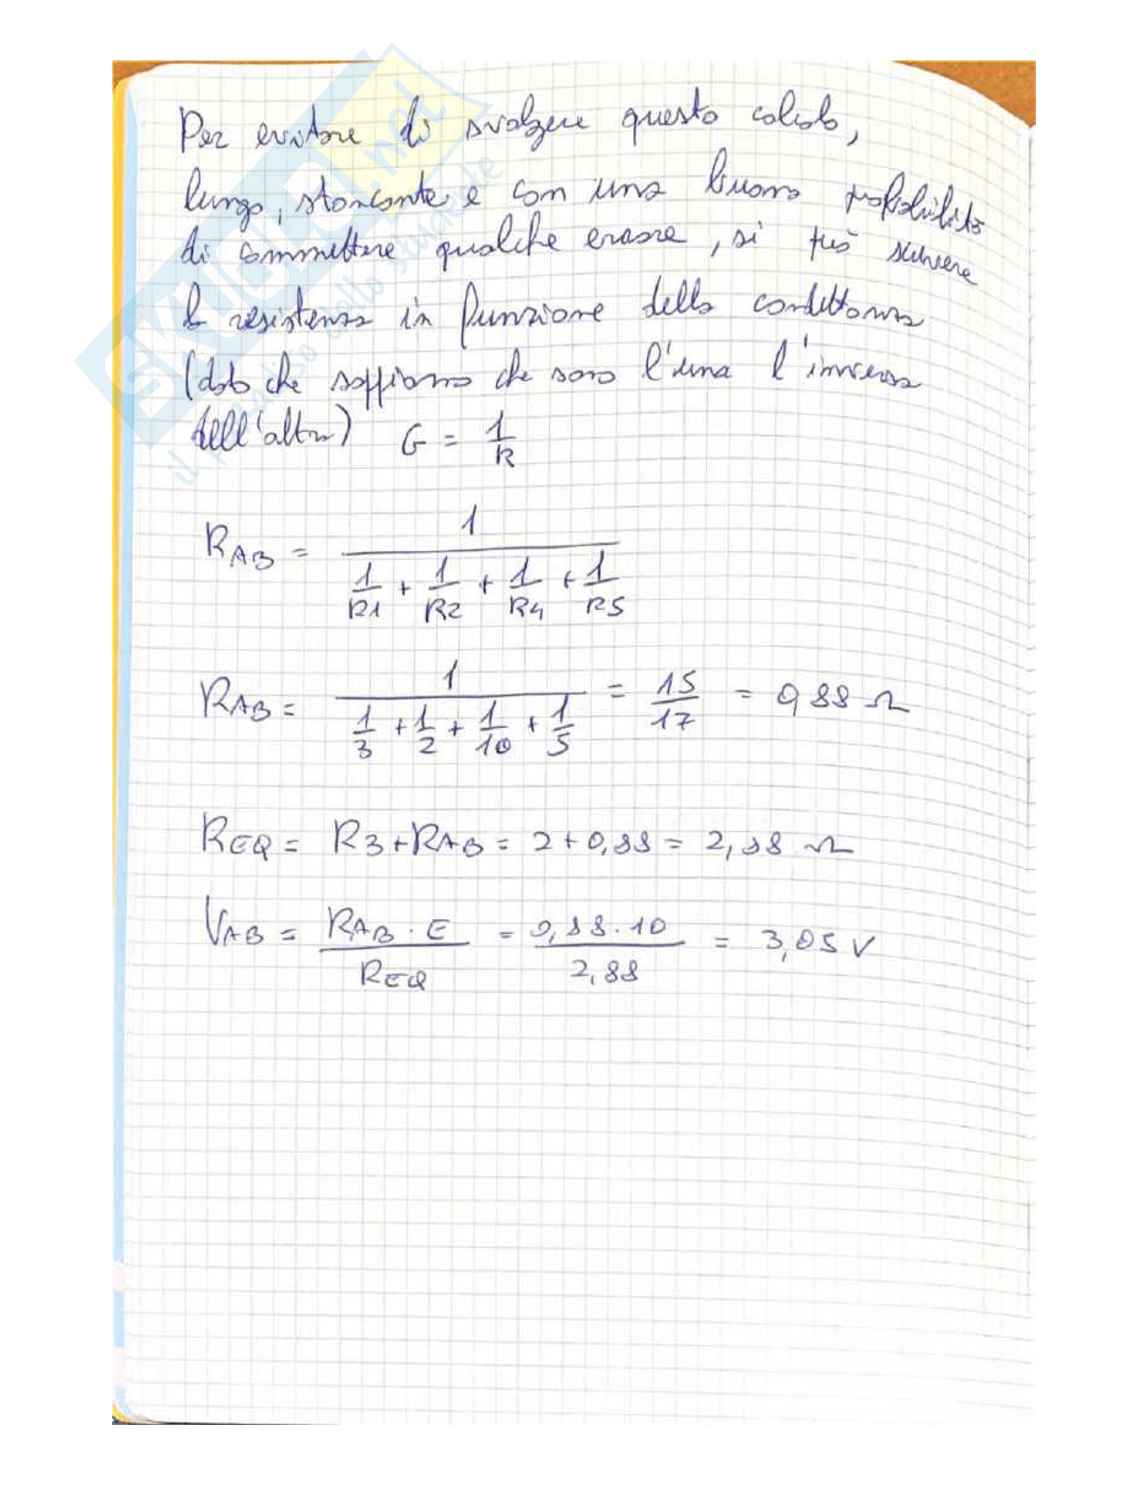 Per evitare di svolgere questo calcolo,
lungo, stancante e con una buona probabilità
di commettere qualche errore, si può scrivere
la resistenza in funzione della conduttanza
(dato che sappiamo che sono l'una l'inversa
dell'altra) G = 1/R
RAB = 1 / (1/R1 + 1/R2 + 1/R4 + 1/R5)
RAB = 1 / (1/3 + 1/2 + 1/10 + 1/5) = 15/17 = 0,88 Ω
REQ = R3 + RAB = 2 + 0,88 = 2,88 Ω
VAB = RAB · E / REQ = 0,88 · 10 / 2,88 = 3,05 V
SKUOLA.net
il paradiso dello studente